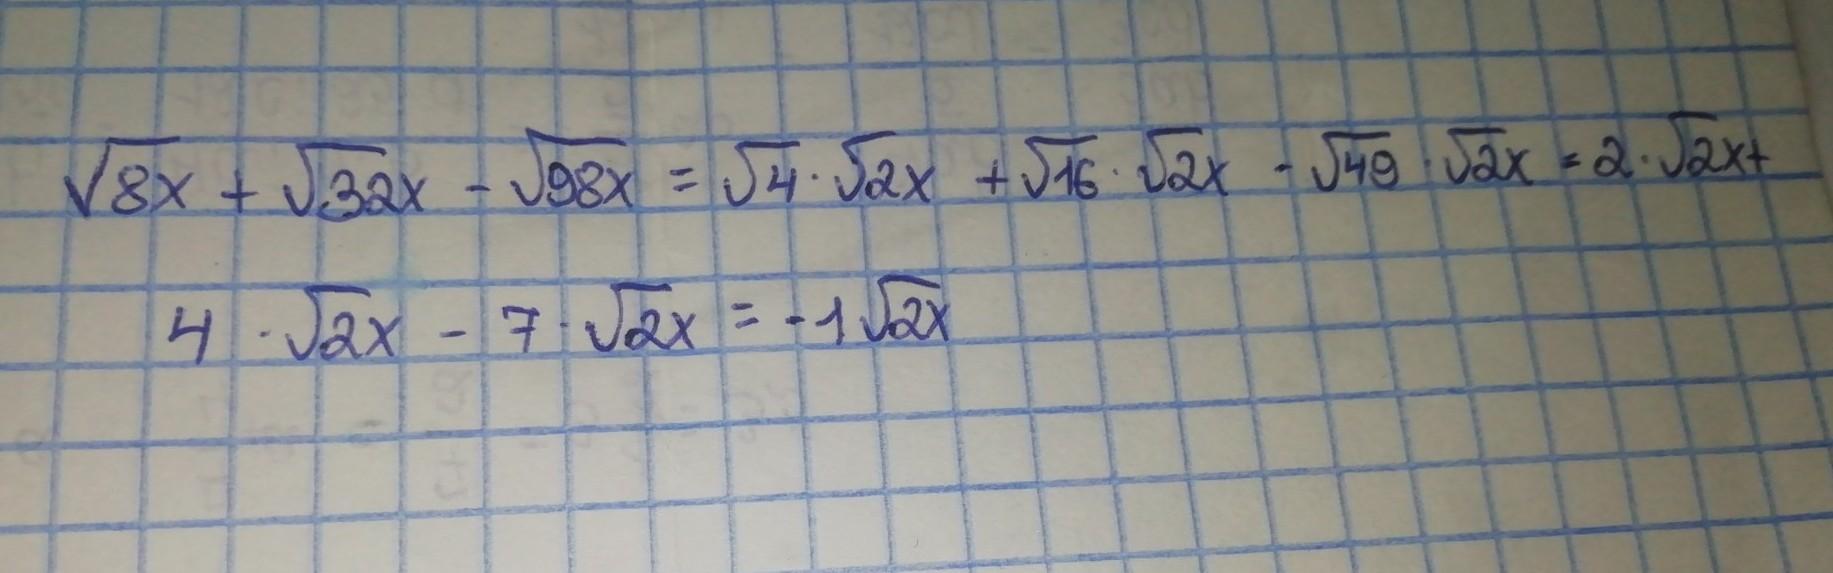 √8x + √32x - √98x = √4 · √2x + √16 · √2x - √49 · √2x = 2 · √2x +
4 · √2x - 7 · √2x = -1√2x